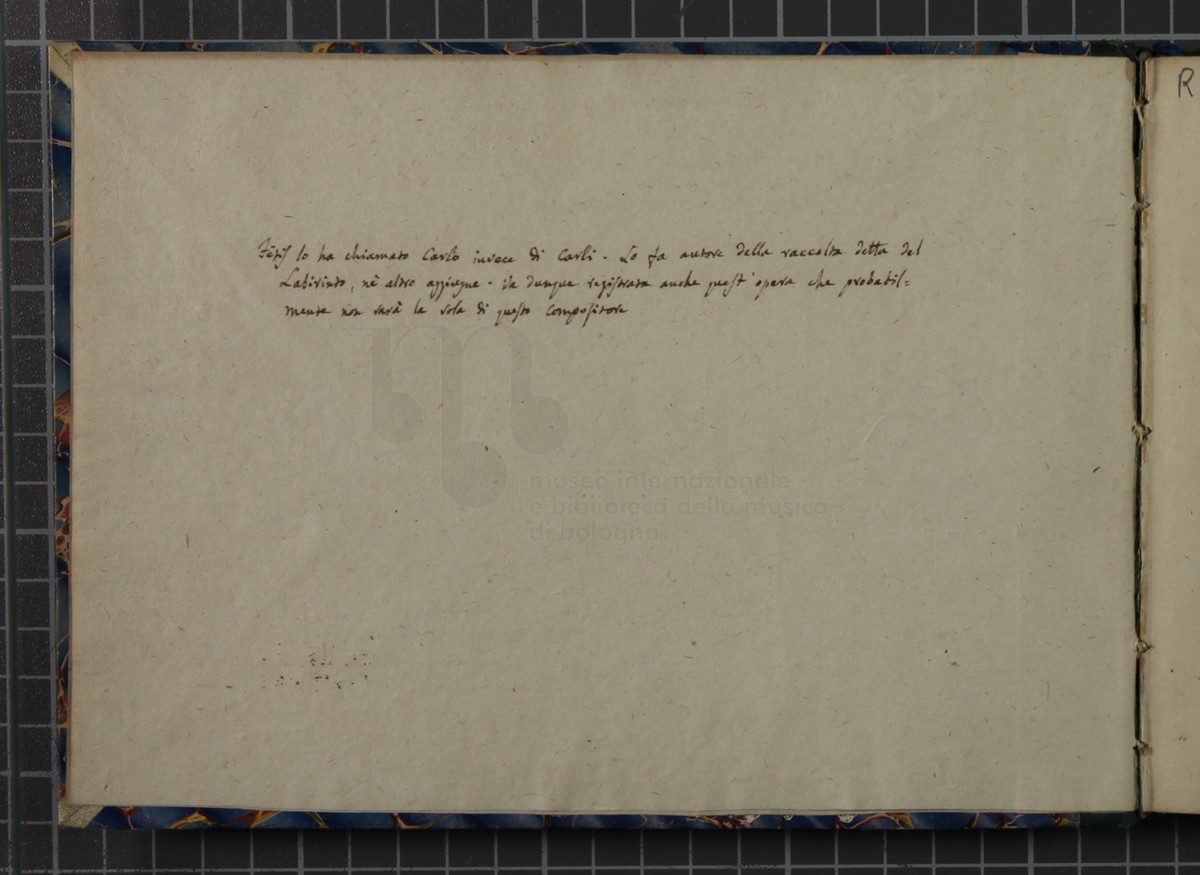 Fétis lo ha chiamato Carlo invece di Carli - Lo fa autore della raccolta detta del
Labirinto, nè altro aggiugne - Va dunque registrata anche quest'opera che probabil=
mente non sarà la sola di questo Compositore
museo internazionale
e biblioteca della musica
di bologna
R